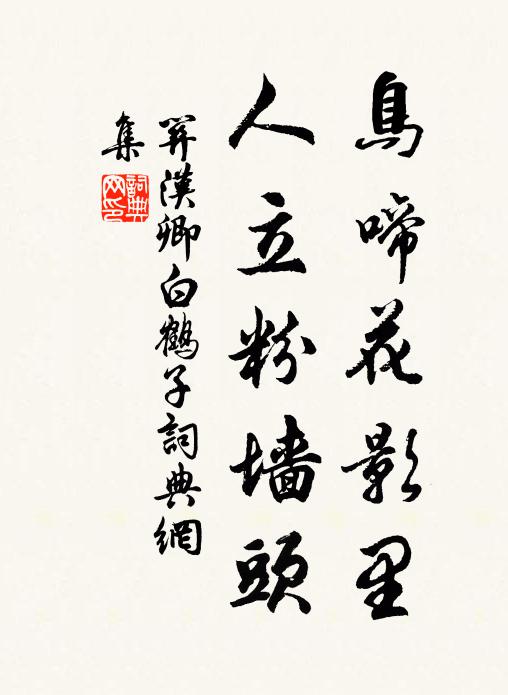 鳥啼花影里
人立粉墙頭
関漢卿白鶴子詞典網
集
詞典
网印